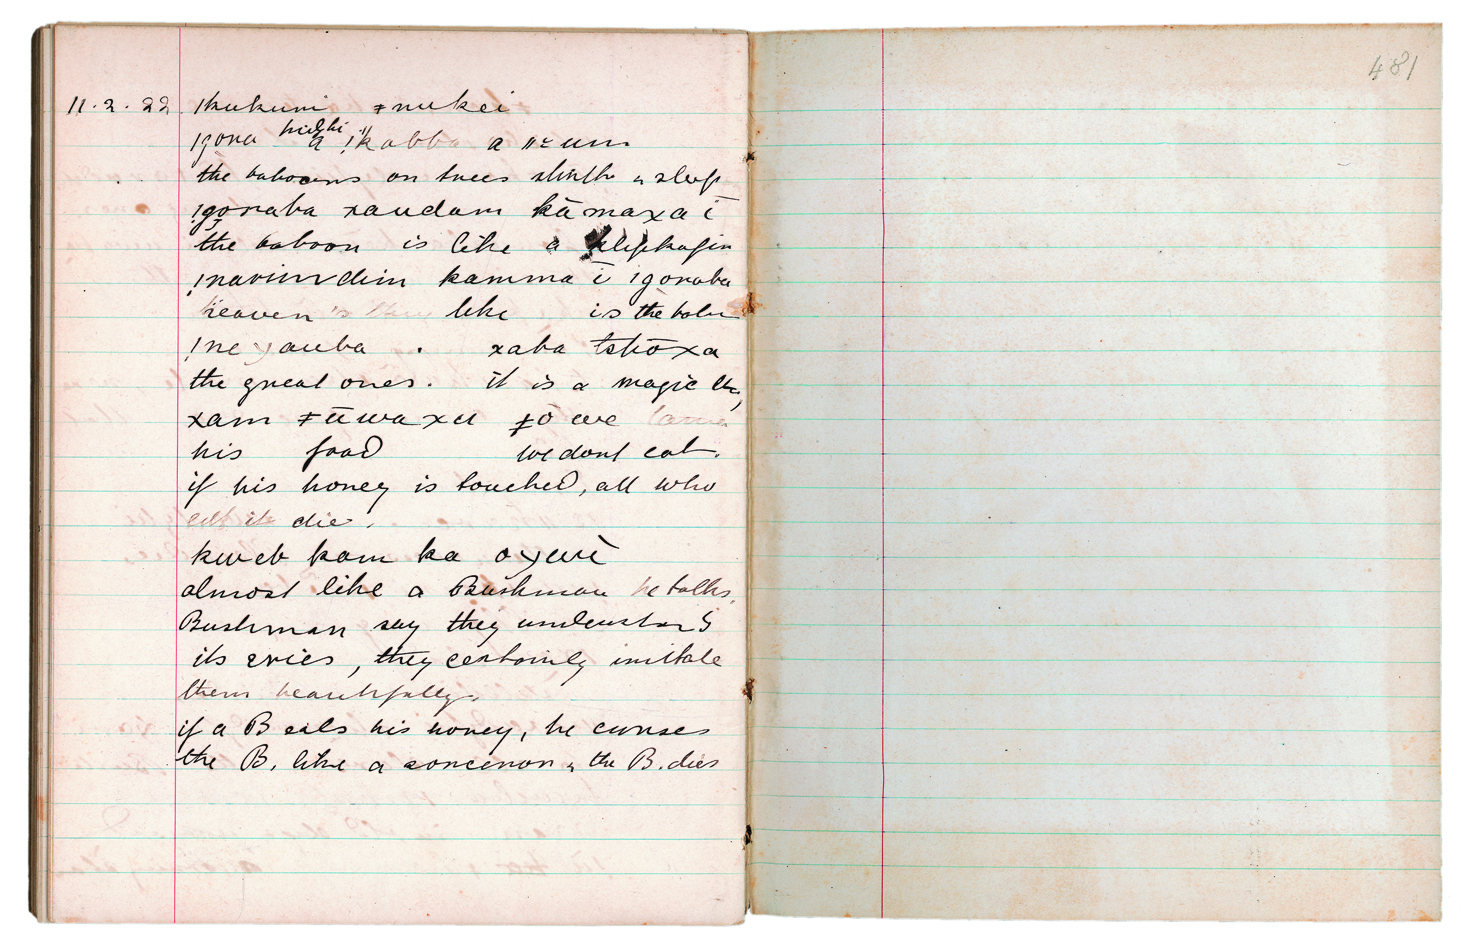 11.2.22. ǀkukuni ǂnukei
ǃgona a ǃkabba a ǁum
the baboons on trees climb & sleep
ǃgonaba xaudam kāmaxa ī
the baboon is like a
ǃnavirindim kamma ī ǃgonaba
heaven like is the
ǃne xauba . xaba tshōxa
the great ones. it is a magic
xam ǂūwaxu ǂo we
his food we dont eat.
if his honey is touched, all who
eat it die.
kweb kam ka oxwè
almost like a Bushman he talks.
Bushman say they understand
its cries, they certainly imitate
them beautifully.
if a B eats his honey, he curses
the B. like a sorceror & the B. dies
481